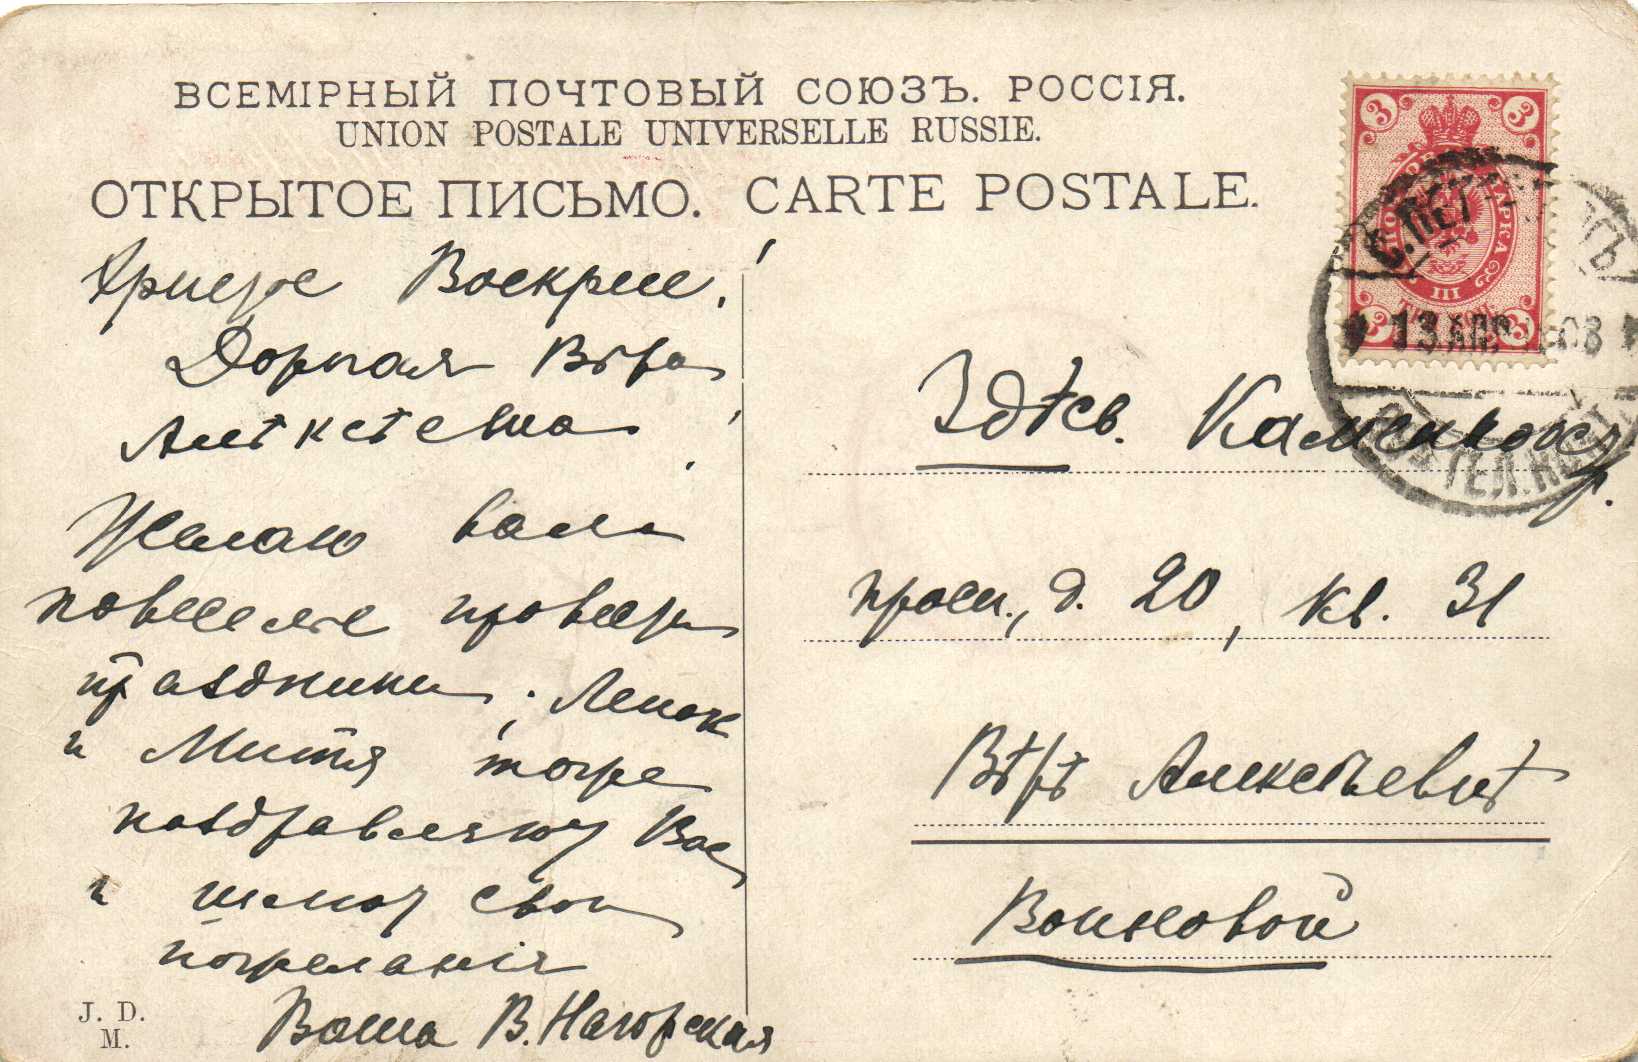 ВСЕМІРНЫЙ ПОЧТОВЫЙ СОЮЗЪ. РОССІЯ.
UNION POSTALE UNIVERSELLE RUSSIE.
ОТКРЫТОЕ ПИСЬМО. CARTE POSTALE.
Христосъ Воскресе!
Дорогая Вѣра
Алексѣевна!
Желаю вамъ
повеселѣе провести
праздники. Ленок
и Митя тоже
поздравляют Вас
и шлют свои
пожеланія
Ваша В. Нагорская
J. D.
M.
3 3
III
3 3
С.ПЕТЕРБУРГЪ
13 АПР 1908
ТЕЛ.
Здѣсь. Каменноостр.
просп., д. 20, кв. 31
Вѣрѣ Алексѣевнѣ
Воиновой